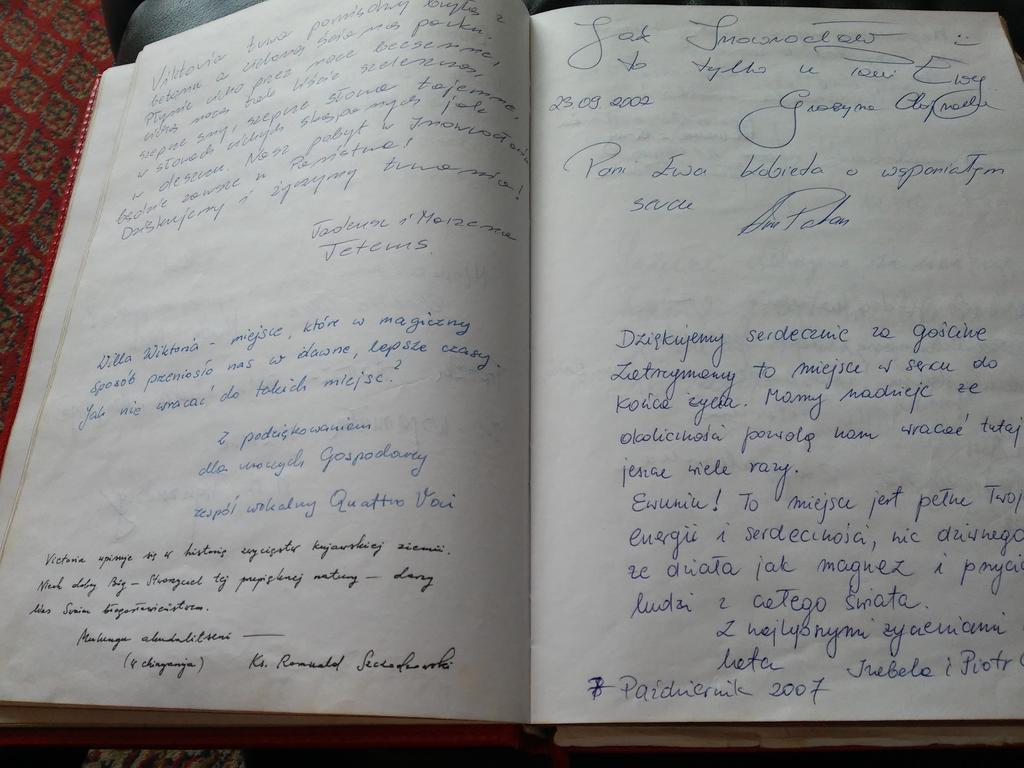 Wiktoria trwa pomiędzy bryłą z
betonu a zieloną ścianą parku.
Płynie cicho przez noce bezsenne,
ciszą nocą tak liście szeleszczą,
szepcze sny, szepcze słowa tajemne,
w słowach cichych skąpanych jak
w deszczu. Nasz pobyt w Inowrocławiu
będzie zawsze u Państwa!
Dziękujemy i życzymy trwania!
Tadeusz i Marzena
Villa Wiktoria - miejsce, które w magiczny
sposób przeniosło nas w dawne, lepsze czasy.
Jak nie wracać do takich miejsc?
Z podziękowaniem
dla Gospodarzy
zespół wokalny Quattro Voci
Victoria wpisuje się w historię zwycięstw kujawskiej ziemi.
Niech dobry Bóg - Stworzyciel tej przepięknej natury - darzy
Was Swoim błogosławieństwem.
Ks. Romuald
Jak Inowrocław :)
to tylko u Pani Ewy
23.09.2002 Grażyna
Pani Ewa kobieta o wspaniałym
sercu
Dziękujemy serdecznie za gościnę
Zatrzymamy to miejsce w sercu do
końca życia. Mamy nadzieję że
okoliczności pozwolą nam wracać tutaj
jeszcze wiele razy.
Ewuniu! To miejsce jest pełne Twoj
energii i serdeczności, nic dziwnego
że działa jak magnez i przycią
ludzi z całego świata.
Z najlepszymi życzeniami
Izabela i Piotr
Październik 2007